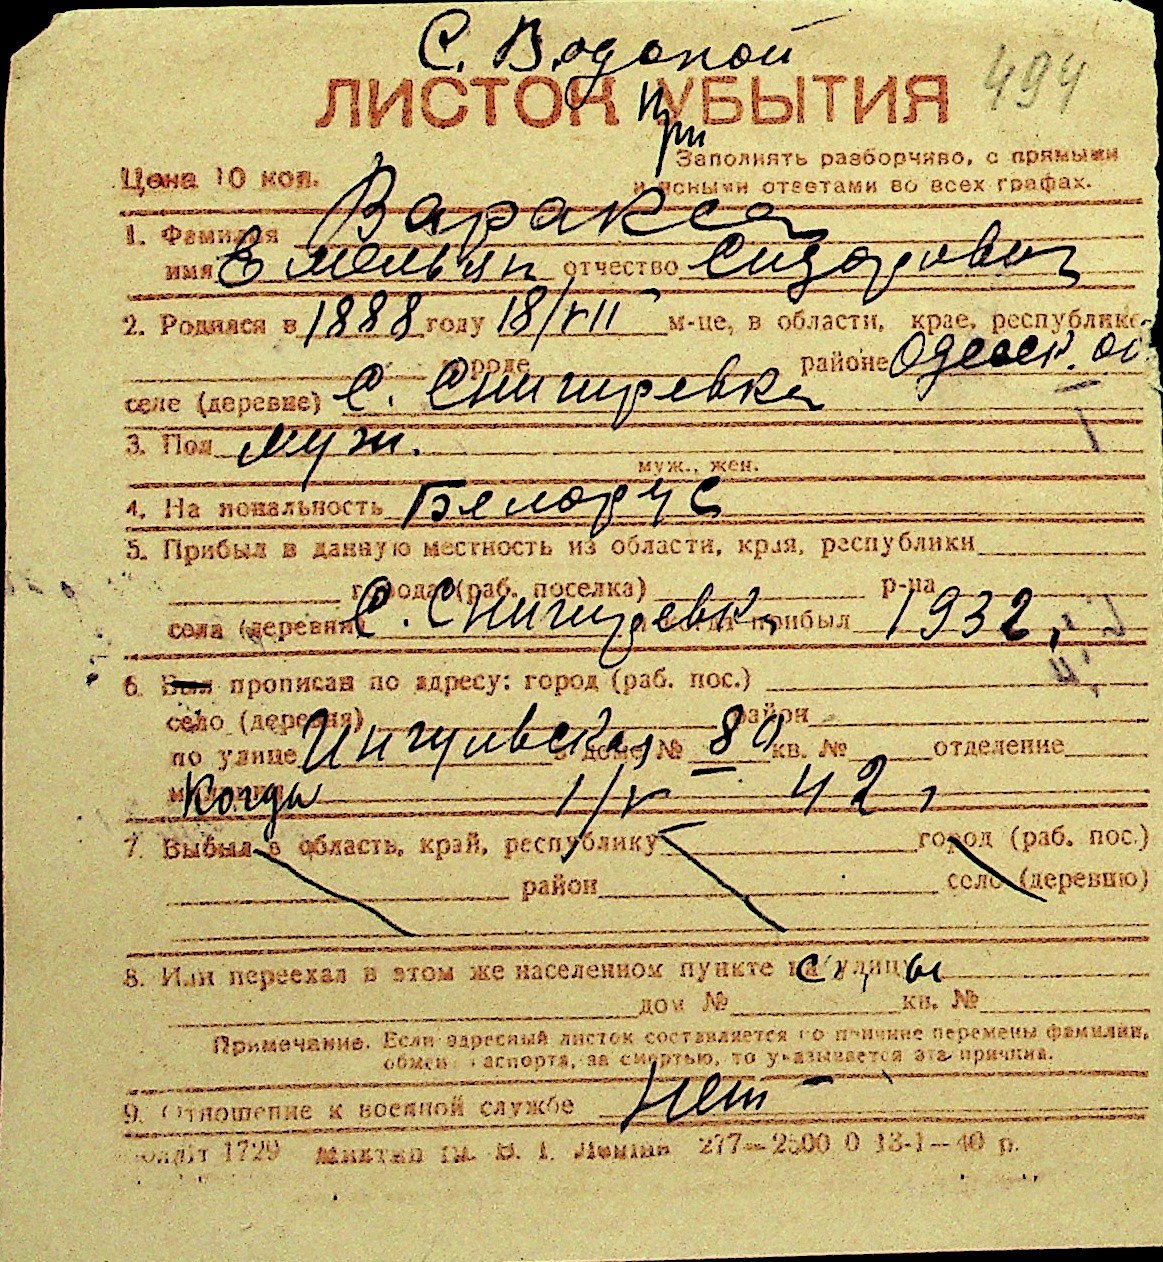 С. Водопой
494
ЛИСТОК УБЫТИЯ
При
Цена 10 коп.
Заполнять разборчиво, с прямыми
и ясными ответами во всех графах.
1. ФамилияВаракса
имя Емельян отчество Сидорович
2. Родился в 1888 году 18/VII м-це, в области, крае, республике
городе районе Одесск. об
селе (деревне) С. Снигиревка
3. Пол муж.
муж., жен.
4. Национальность Белорус
5. Прибыл в данную местность из области, края, республики
города (раб. поселка) р-на
села (деревни) С. Снигиревка и когда прибыл 1932,
6. Был прописан по адресу: город (раб. пос.)
село (деревня) район
по улице Ингульская в доме № 80 кв. № отделение
Когда 1/V 42,
7. Выбыл в область, край, республику город (раб. пос.)
район село (деревню)
8. Или переехал в этом же населенном пункте с улицы
дом № кв. №
Примечание. Если адресный листок составляется по причине перемены фамилии,
обмена паспорта, за смертью, то указывается эта причина.
9. Отношение к военной службе Нет
1729 277—2500 0 13-1—40 р.